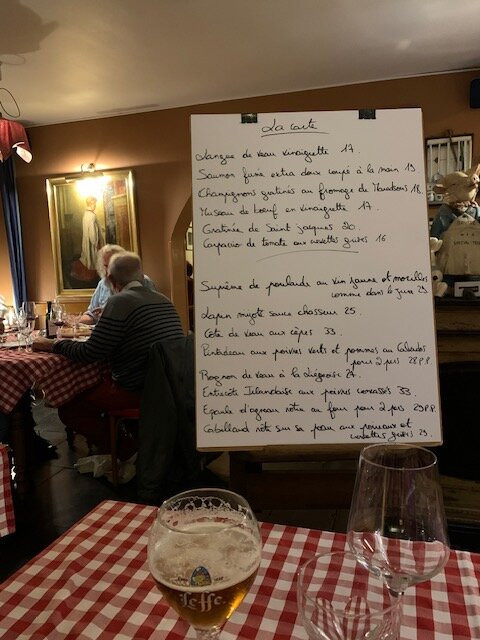 La carte
Langue de veau vinaigrette 17.
Saumon fumé extra doux coupé à la main 19
Champignons gratinés au fromage de
Museau de bœuf en vinaigrette 17
Gratinée de Saint jacques 20.
Carpaccio de tomate aux crevettes grises 16
Suprême de poularde au vin jaune et morilles
comme dans le Jura 29
Lapin mijoté sauce chasseur 25.
Côte de veau aux cèpes 33.
Pintadeau aux poivres verts et pommes au Calvados
pour 2 pers 28 P.P.
Rognon de veau à la liégeoise 27.
Entrecôte Irlandaise aux poivres concassés 33.
Epaule d'agneau rôtie au four pour 2 pers 29 P.P.
Cabillaud rôti sur sa peau aux poireaux et
crevettes grises 29.
Leffe